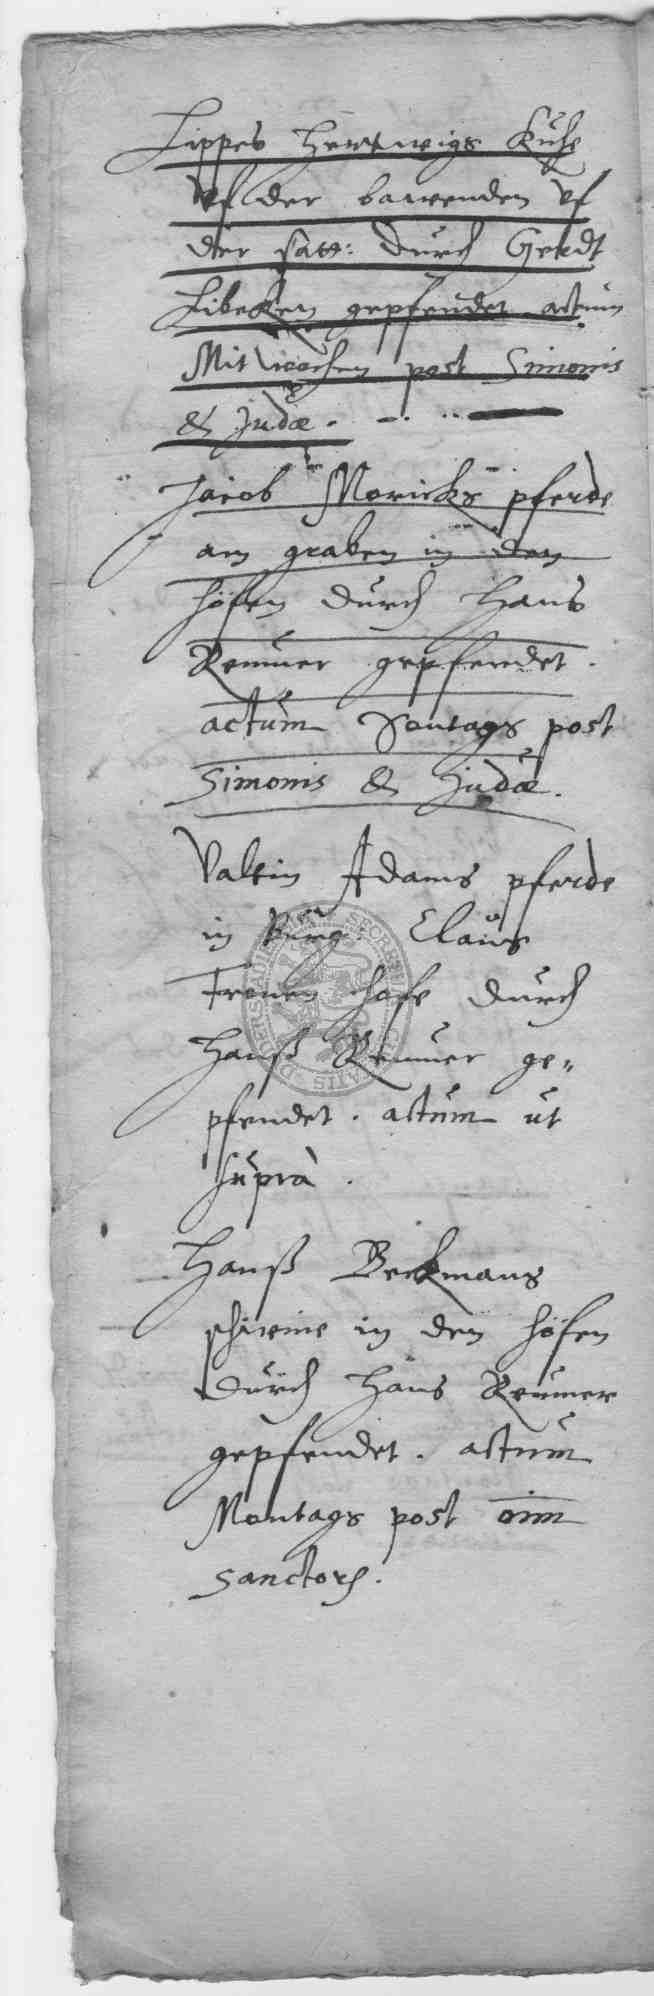 Lippes Hertwigs Kuhe
uf der barrenden uf
der satt: durch Gerdt
Libeken gepfendet actum
Mitwochen post Simonis
& Judæ.
Jacob Moricks pferde
am graben in den
höfen durch Hans
Remmer gepfendet.
actum Sontags post
Simonis & Judæ.
Valtin Adams pferde
in Claus
hofe durch
Hanß Remmer ge„
pfendet. actum ut
suprà.
Hanß Beckmans
schweine in den höfen
durch Hans Remmer
gepfendet. actum
Montags post om̅
sanctorʒ.